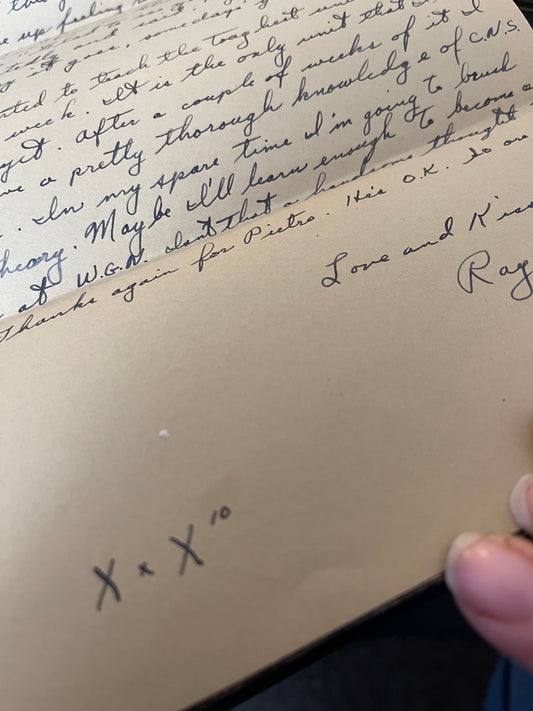 this
e up feeling
and
it goes, someday.
ted to teach the
week. It is the only unit that
yet. After a couple of weeks of it I
ve a pretty thorough knowledge of C.N.S.
. In my spare time I'm going to brush
heory. Maybe I'll learn enough to become a
at W.G.N. Isn't that a handsome thought
Thanks again for Pietro. He's O.K. So are
Love and Kiss
Ray
X × X¹⁰